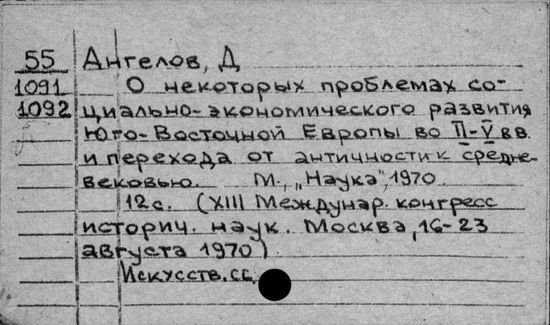 55 Ангелов, Д
1091 О некоторых проблемах со-
1092 циально-экономического развития
Юго-Восточной Европы во II-V вв.
и перехода от античности к средне-
вековью. М., „Наука", 1970
12с. (XIII Междунар. конгресс
историч. наук. Москва, 16-23
августа 1970)
Искусств. сб.